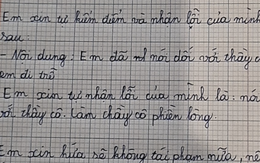 Em xin tự kiểm điểm và nhận lỗi của mình
sau:
- Nội dung: Em đã nói dối với thầy c
em đi trễ
Em xin tự nhận lỗi của mình là: nói
với thầy cô. Làm thầy cô phiền lòng
Em xin hứa sẽ không tái phạm nữa, nế